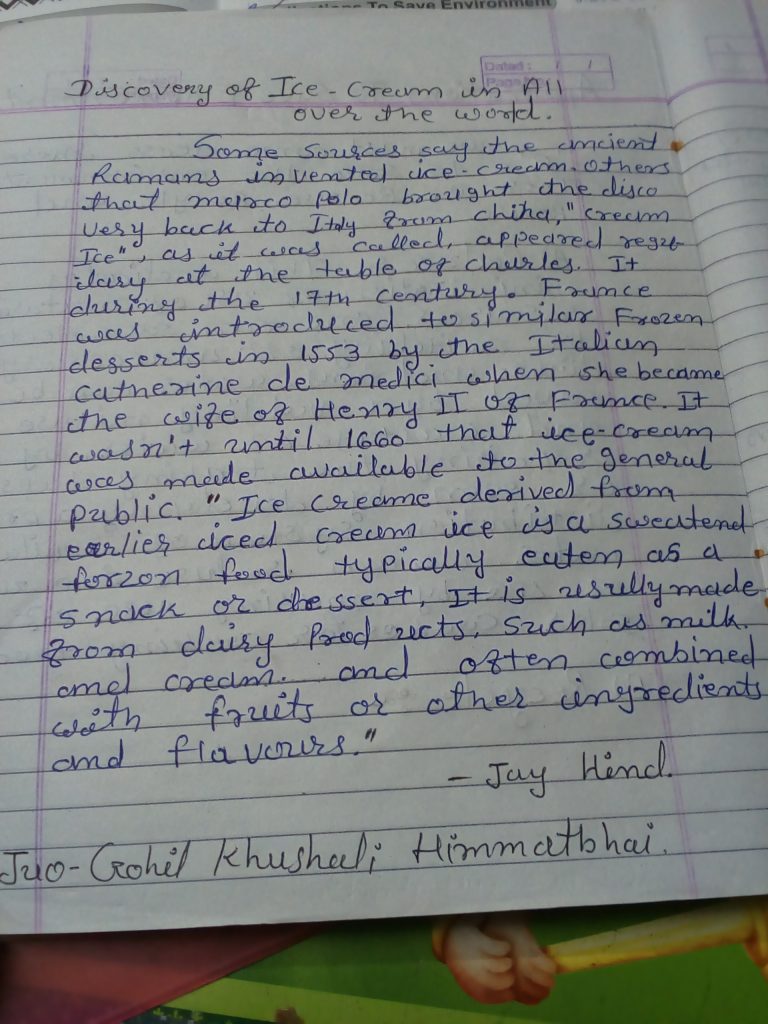 To Save Environment)
Dated : / /
Page
Discovery of Ice-Cream in All
over the world.
Some sources say the ancient
Ramans invented ice-cream. others
that marco Polo brought the disco
very back to Italy from china, "cream
Ice", as it was called, appeared regu
larly at the table of charles. It
during the 17th century. France
was introduced to similar Frozen
desserts in 1553 by the Italian
catherine de medici when she became
the wife of Henry II of France. It
wasn't until 1660 that ice-cream
was made available to the general
public. "Ice creame derived from
earlier iced cream ice is a sweatend
forzon food typically eaten as a
snack or dessert, It is usullymade
from dairy Prod ucts, such as milk.
and cream. and often combined
with fruits or other ingredients
and flavours."
- Jay Hind.
Gohil Khushali Himmatbhai.